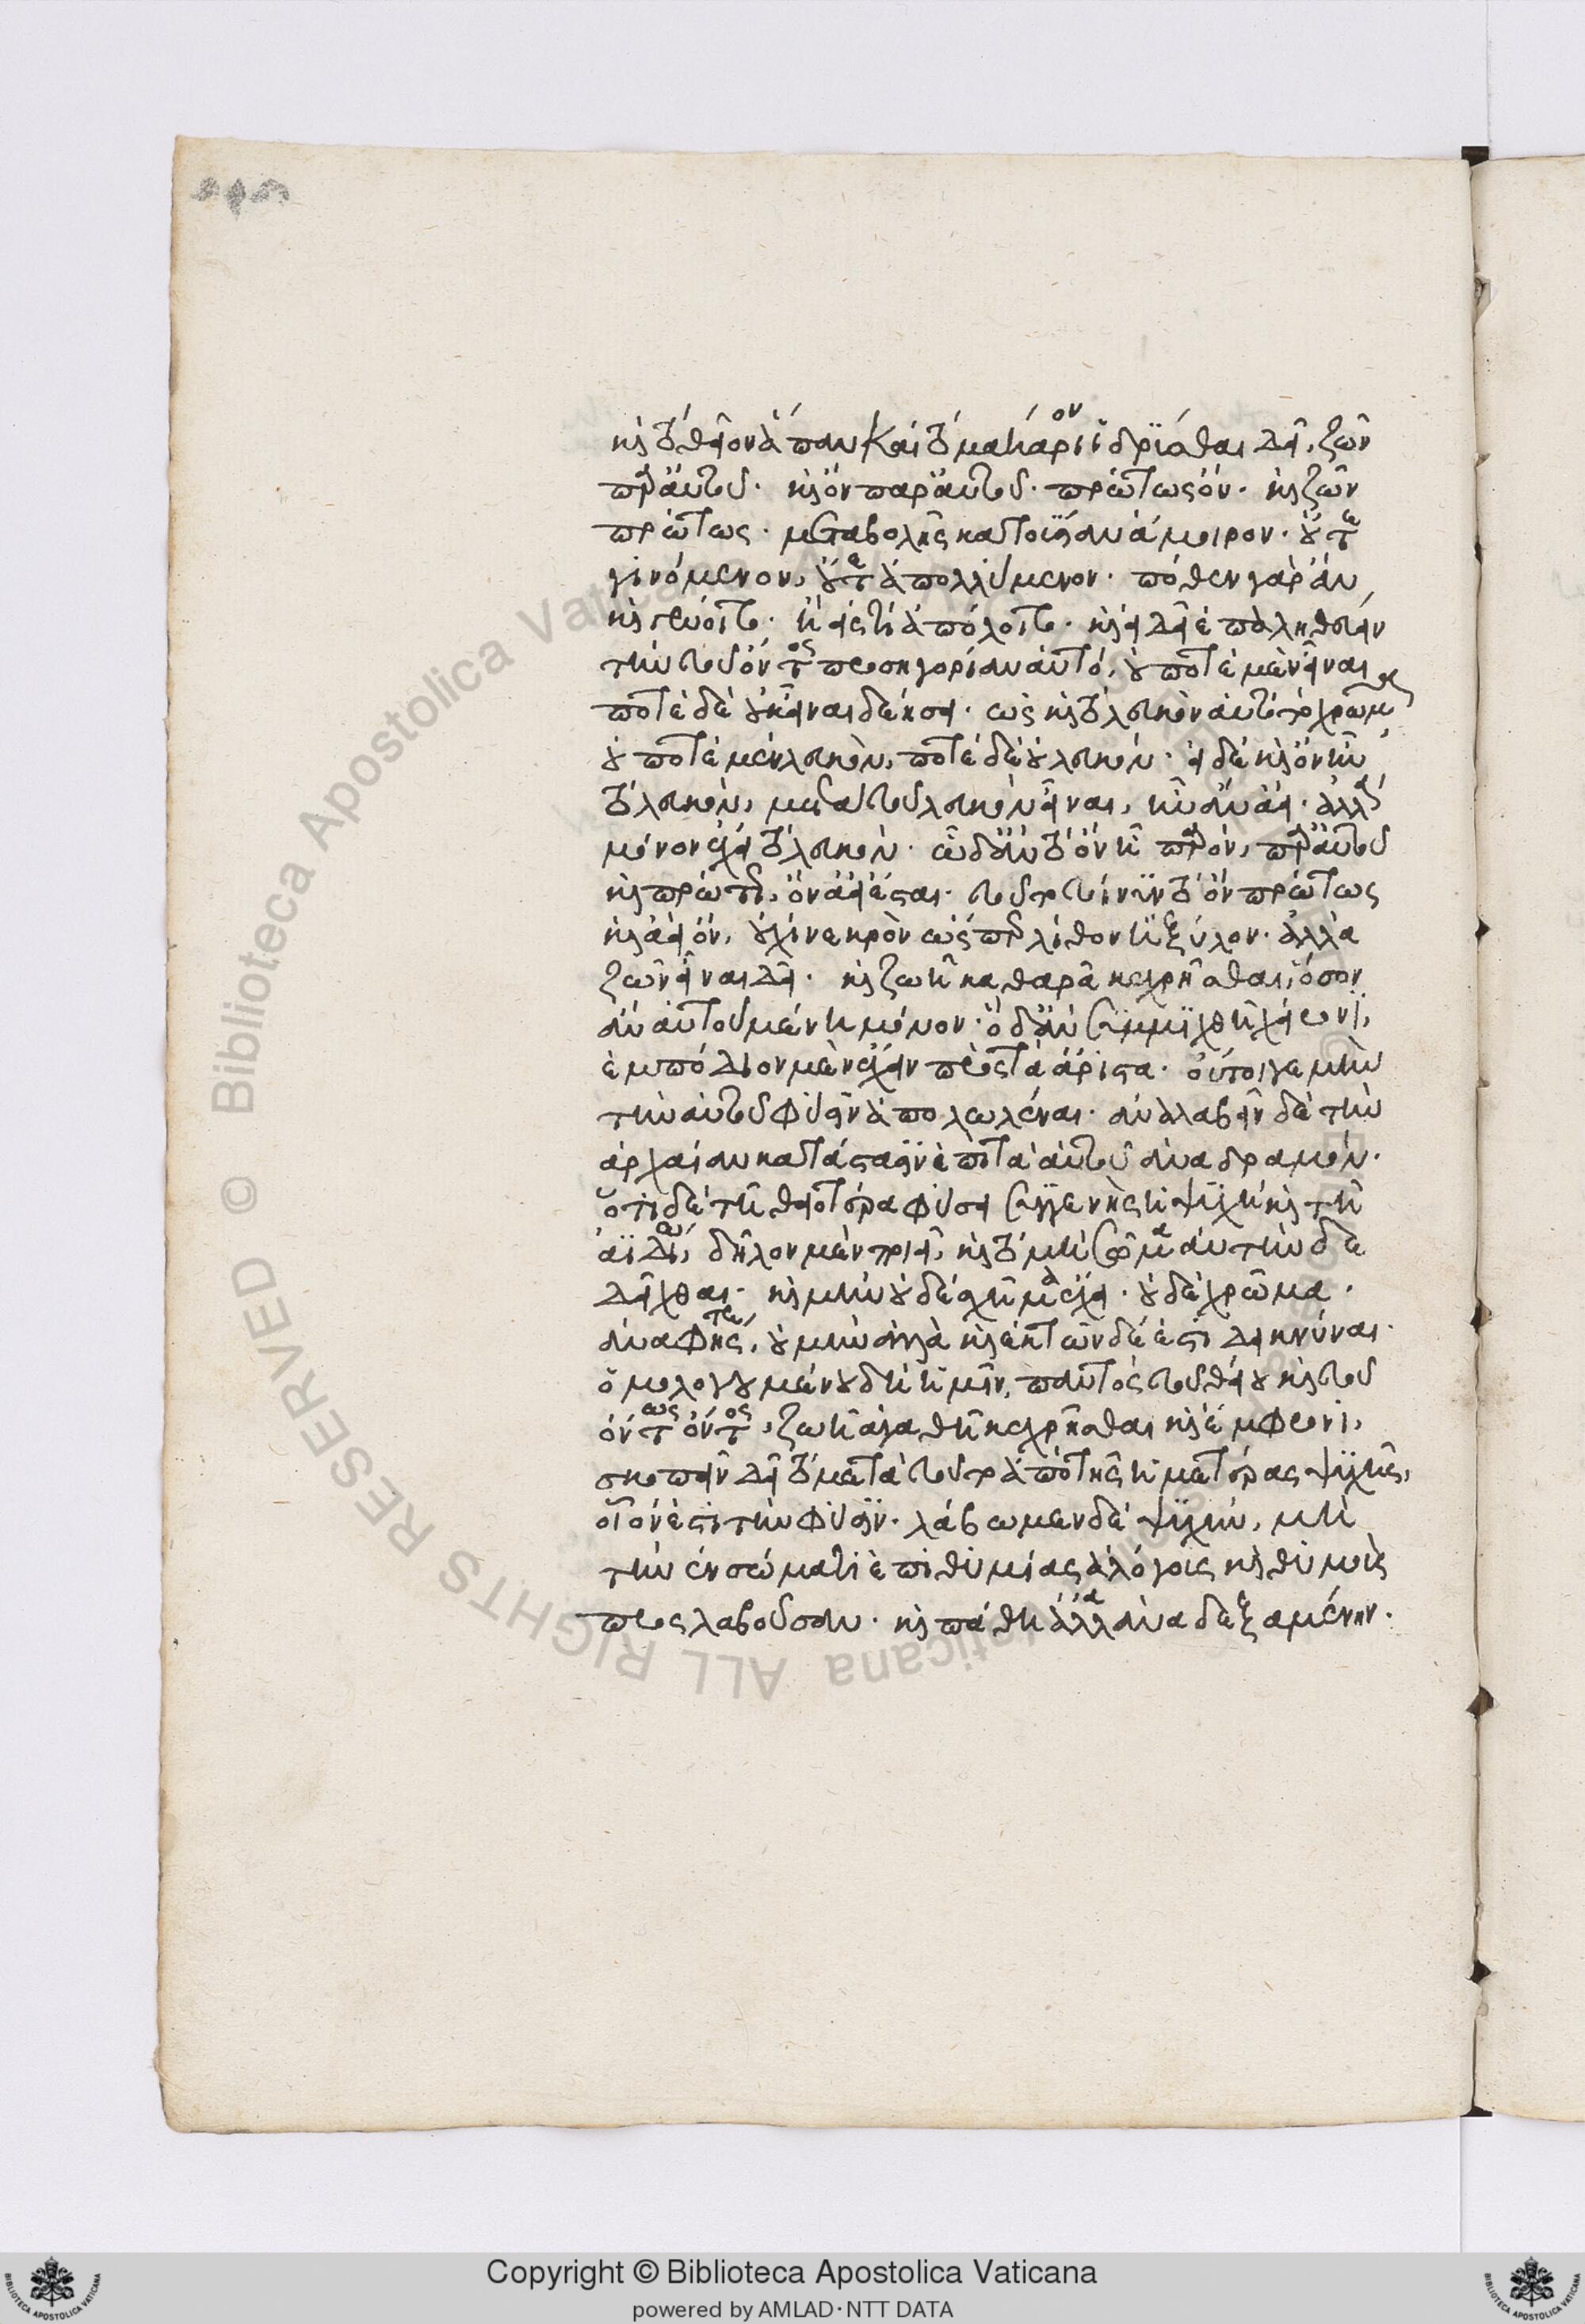 καὶ τὸ θεῖον ἅπαν καὶ τὸ μακάριον ἱδρῦσθαι δεῖ, ζῶν
παρ' αὐτοῦ. καὶ ὂν παρ' αὐτοῦ. πρώτως ὄν. καὶ ζῶν
πρώτως. μεταβολῆς κατ' οὐσίαν ἄμοιρον. οὔτε
γινόμενον, οὔτε ἀπολλύμενον. πόθεν γὰρ ἂν
καὶ γένοιτο. ἢ εἰς τί ἀπόλοιτο. καὶ εἰ δεῖ ἐπαληθεύειν
τὴν τοῦ ὄντος προσηγορίαν αὐτό, οὐ ποτὲ μὲν εἶναι
ποτὲ δὲ οὐκ εἶναι δεήσει. ὡς καὶ τὸ λευκὸν αὐτὸ τὸ χρῶμα
οὐ ποτὲ μὲν λευκὸν, ποτὲ δὲ οὐ λευκόν. εἰ δὲ καὶ ὂν ἦν
τὸ λευκὸν, μετὰ τοῦ λευκὸν εἶναι, ἦν ἂν ἀεί. ἀλλὰ
μόνον ἔχει τὸ λευκόν. ᾧ δ' ἂν τὸ ὂν ᾖ παρὸν, παρ' αὐτοῦ
καὶ πρώτως, ὂν ἀεὶ ἔσται. τοῦτο τοίνυν τὸ ὂν πρώτως
καὶ ἀεὶ ὂν, οὐχὶ νεκρὸν ὥσπερ λίθον ἢ ξύλον. ἀλλὰ
ζῶν εἶναι δεῖ. καὶ ζωῇ καθαρᾷ κεχρῆσθαι, ὅσον
ἂν αὐτοῦ μένῃ μόνον. ὃ δ' ἂν συμμιχθῇ χείρονι,
ἐμπόδιον μὲν ἔχειν πρὸς τὰ ἄριστα. οὔτοι γε μὴν
τὴν αὐτοῦ φύσιν ἀπολωλέναι. ἀναλαβεῖν δὲ τὴν
ἀρχαίαν κατάστασιν ἐπὶ τὰ αὐτοῦ ἀναδραμόν.
ὅτι δὲ τῇ θειοτέρᾳ φύσει συγγενὴς ἡ ψυχὴ καὶ τῇ
ἀϊδίῳ, δῆλον μὲν ποιεῖ, καὶ τὸ μὴ σῶμα αὐτὴν δε
δεῖχθαι. καὶ μὴν οὐδὲ σχῆμα ἔχει. οὐδὲ χρῶμα.
ἀναφής τε, οὐ μὴν ἀλλὰ καὶ ἐκ τῶνδε ἔστι δεικνύναι.
ὁμολογουμένου δὴ ἡμῖν, παντὸς τοῦ θείου καὶ τοῦ
ὄντως ὄντος, ζωῇ ἀγαθῇ κεχρῆσθαι καὶ ἔμφρονι,
σκοπεῖν δεῖ τὸ μετὰ τοῦτο ἀπὸ τῆς ἡμετέρας ψυχῆς,
οἷόν ἐστι τὴν φύσιν. λάβωμεν δὲ ψυχὴν, μὴ
τὴν ἐν σώματι ἐπιθυμίας ἀλόγοις καὶ θυμοὺς
προσλαβοῦσαν. καὶ πάθη ἄλλα ἀναδεξαμένην.